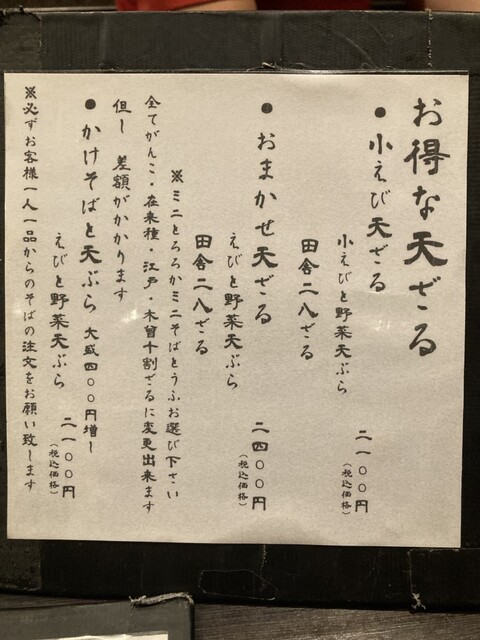 お得な天ざる
● 小えび天ざる
小えびと野菜天ぷら
田舎二八ざる
二一〇〇円
（税込価格）
● おまかせ天ざる
えびと野菜天ぷら
田舎二八ざる
二四〇〇円
（税込価格）
※ミニとろろかミニそばとうふお選び下さい
全てがんこ・在来種・江戸・木曽十割ざるに変更出来ます
但し 差額がかかります
● かけそばと天ぷら 大盛四〇〇円増し
えびと野菜天ぷら
二一〇〇円
（税込価格）
※必ずお客様一人一品からのそばの注文をお願い致します